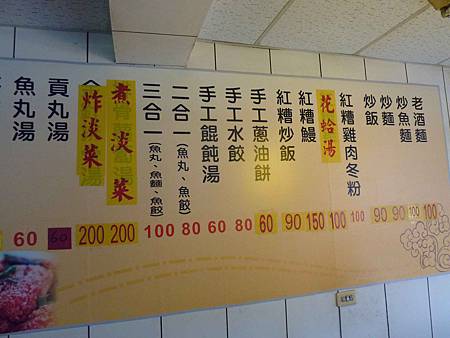 老酒麵 100
炒魚麵 100
炒麵 90
炒飯 90
紅糟雞肉冬粉 100
花蛤湯 100
紅糟鰻 150
紅糟炒飯 90
手工蔥油餅 60
手工水餃 80
手工餛飩湯 60
二合一(魚丸、魚餃) 80
三合一(魚丸、魚麵、魚餃) 100
煮淡菜 200
炸淡菜 200
貢丸湯 60
魚丸湯 60